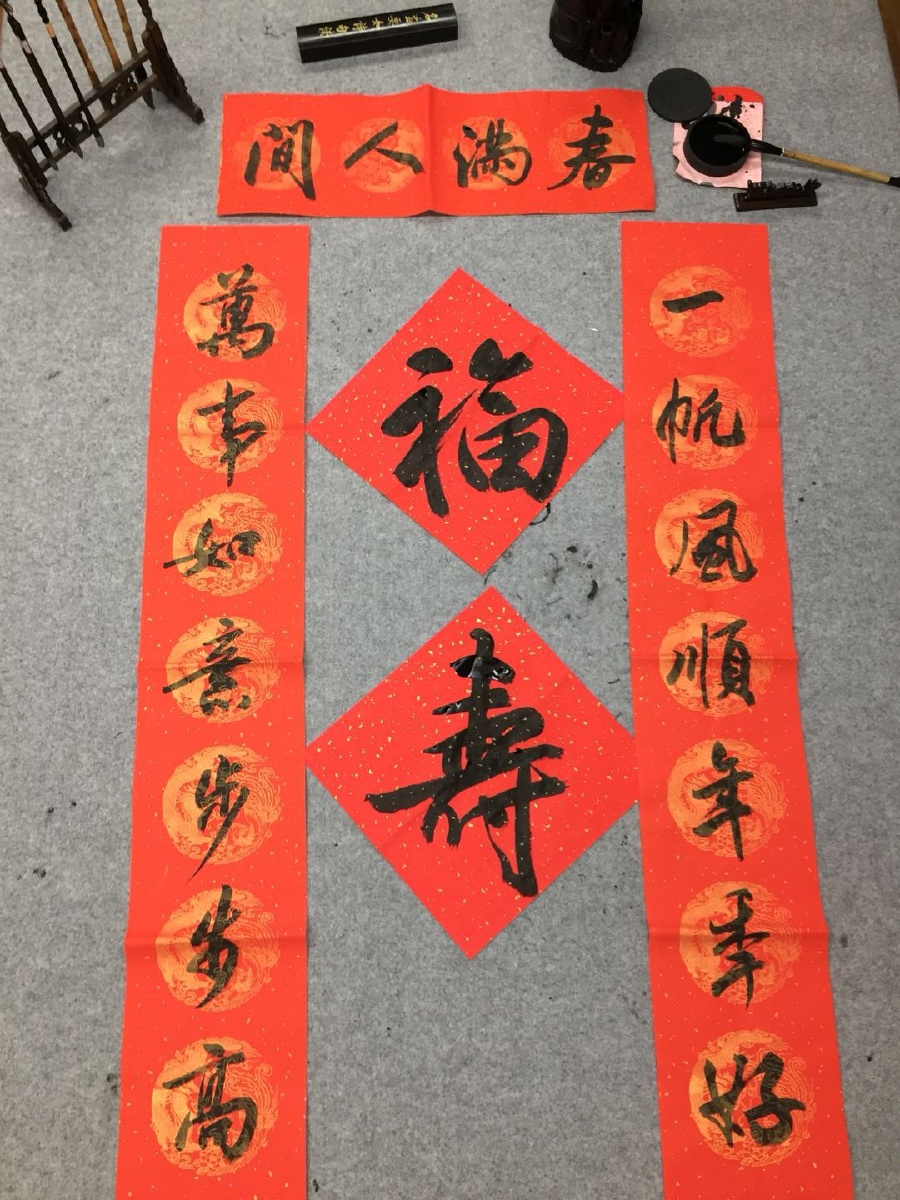 春滿人間
一帆風順年年好
萬事如意步步高
福
壽